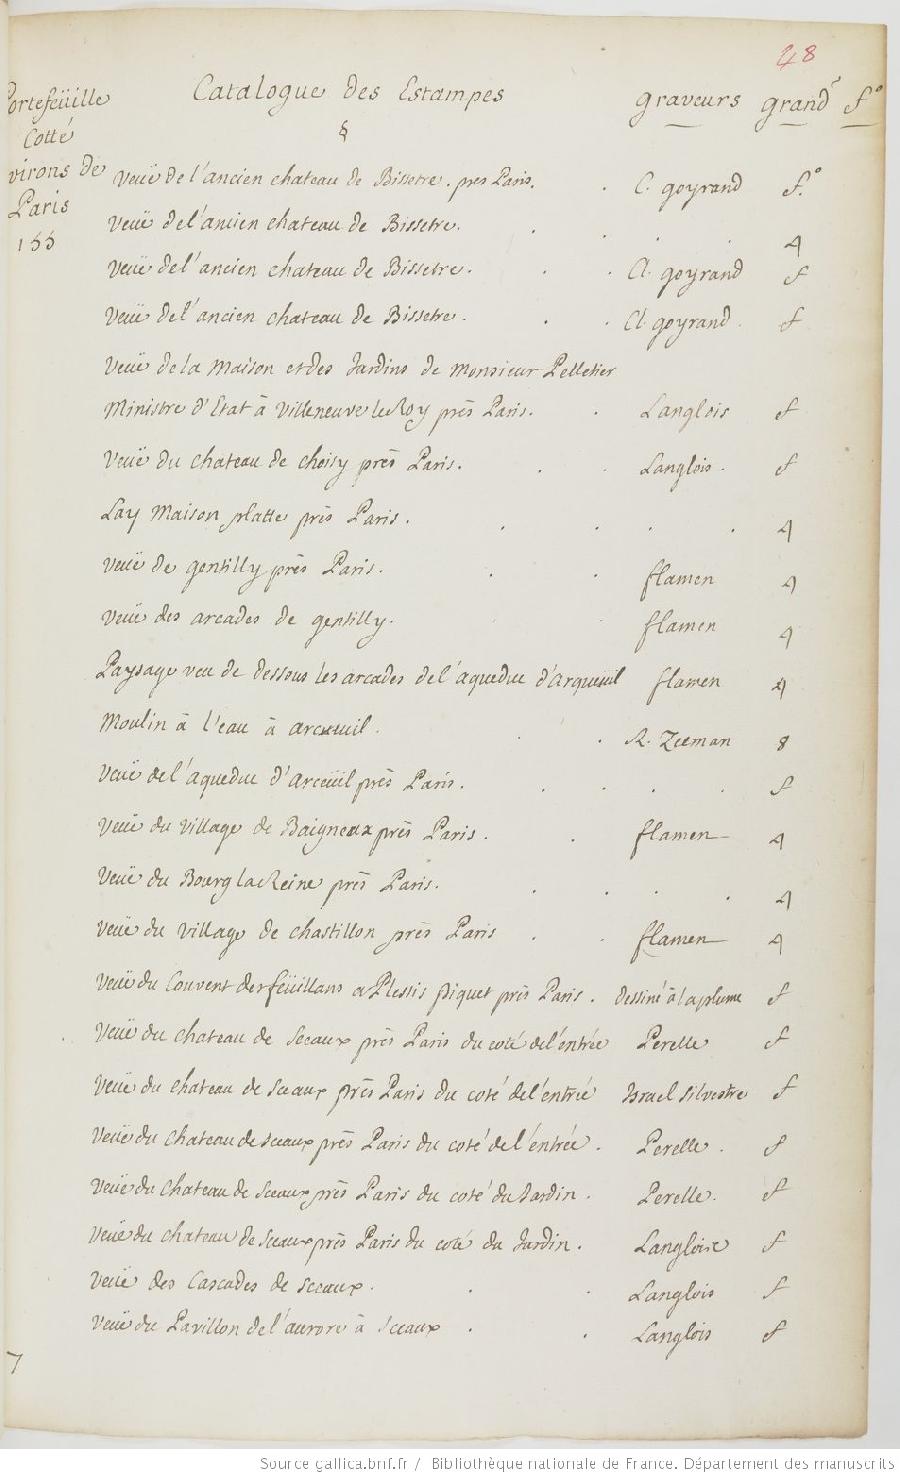 48
Portefeüille Catalogue des Estampes graveurs grand.r f.o
Cotté §
virons de
Paris
155
Veuë de l'ancien chateau de Bissetre. pres Paris. C. goyrand f.o
Veuë de l'ancien chateau de Bissetre. 4
Veuë de l'ancien chateau de Bissetre. Cl. goyrand f
Veuë de l'ancien chateau de Bissetre. Cl. goyrand. f
Veuë de la Maison et des Jardins de Monsieur Pelletier
Ministre d'Etat à Villeneuve le Roy près Paris. Langlois f
Veuë du chateau de choisy près Paris. Langlois. f
Lay Maison platte près Paris. 4
Veuë de gentilly près Paris. flamen 4
Veuë des arcades de gentilly. flamen 4
Paysage veu de dessous les arcades de l'aqueduc d'arqueuil flamen 4
Moulin à l'eau à arcueuil. R. Zeeman 8
Veuë de l'aqueduc d'Arceüil près Paris. f
Veuë du village de Baigneux près Paris. flamen 4
Veuë du Bourg la Reine près Paris. 4
Veuë du village de chastillon près Paris flamen 4
Veuë du Couvent des feüillans a Plessis piquet près Paris. dessiné à la plume f
Veuë du chateau de Sceaux près Paris du coté de l'entrée Perelle f
Veuë du chateau de Sceaux près Paris du coté de l'entrée Israel silvestre f
Veuë du chateau de sceaux près Paris du coté de l'entrée. Perelle. f
Veuë du chateau de sceaux près Paris du coté du Jardin. Perelle. f
Veuë du chateau de sceaux près Paris du coté du Jardin. Langlois f
Veuë des Cascades de sceaux. Langlois f
Veuë du Pavillon de l'aurore à sceaux. Langlois f
7
Source gallica.bnf.fr / Bibliothèque nationale de France. Département des manuscrits